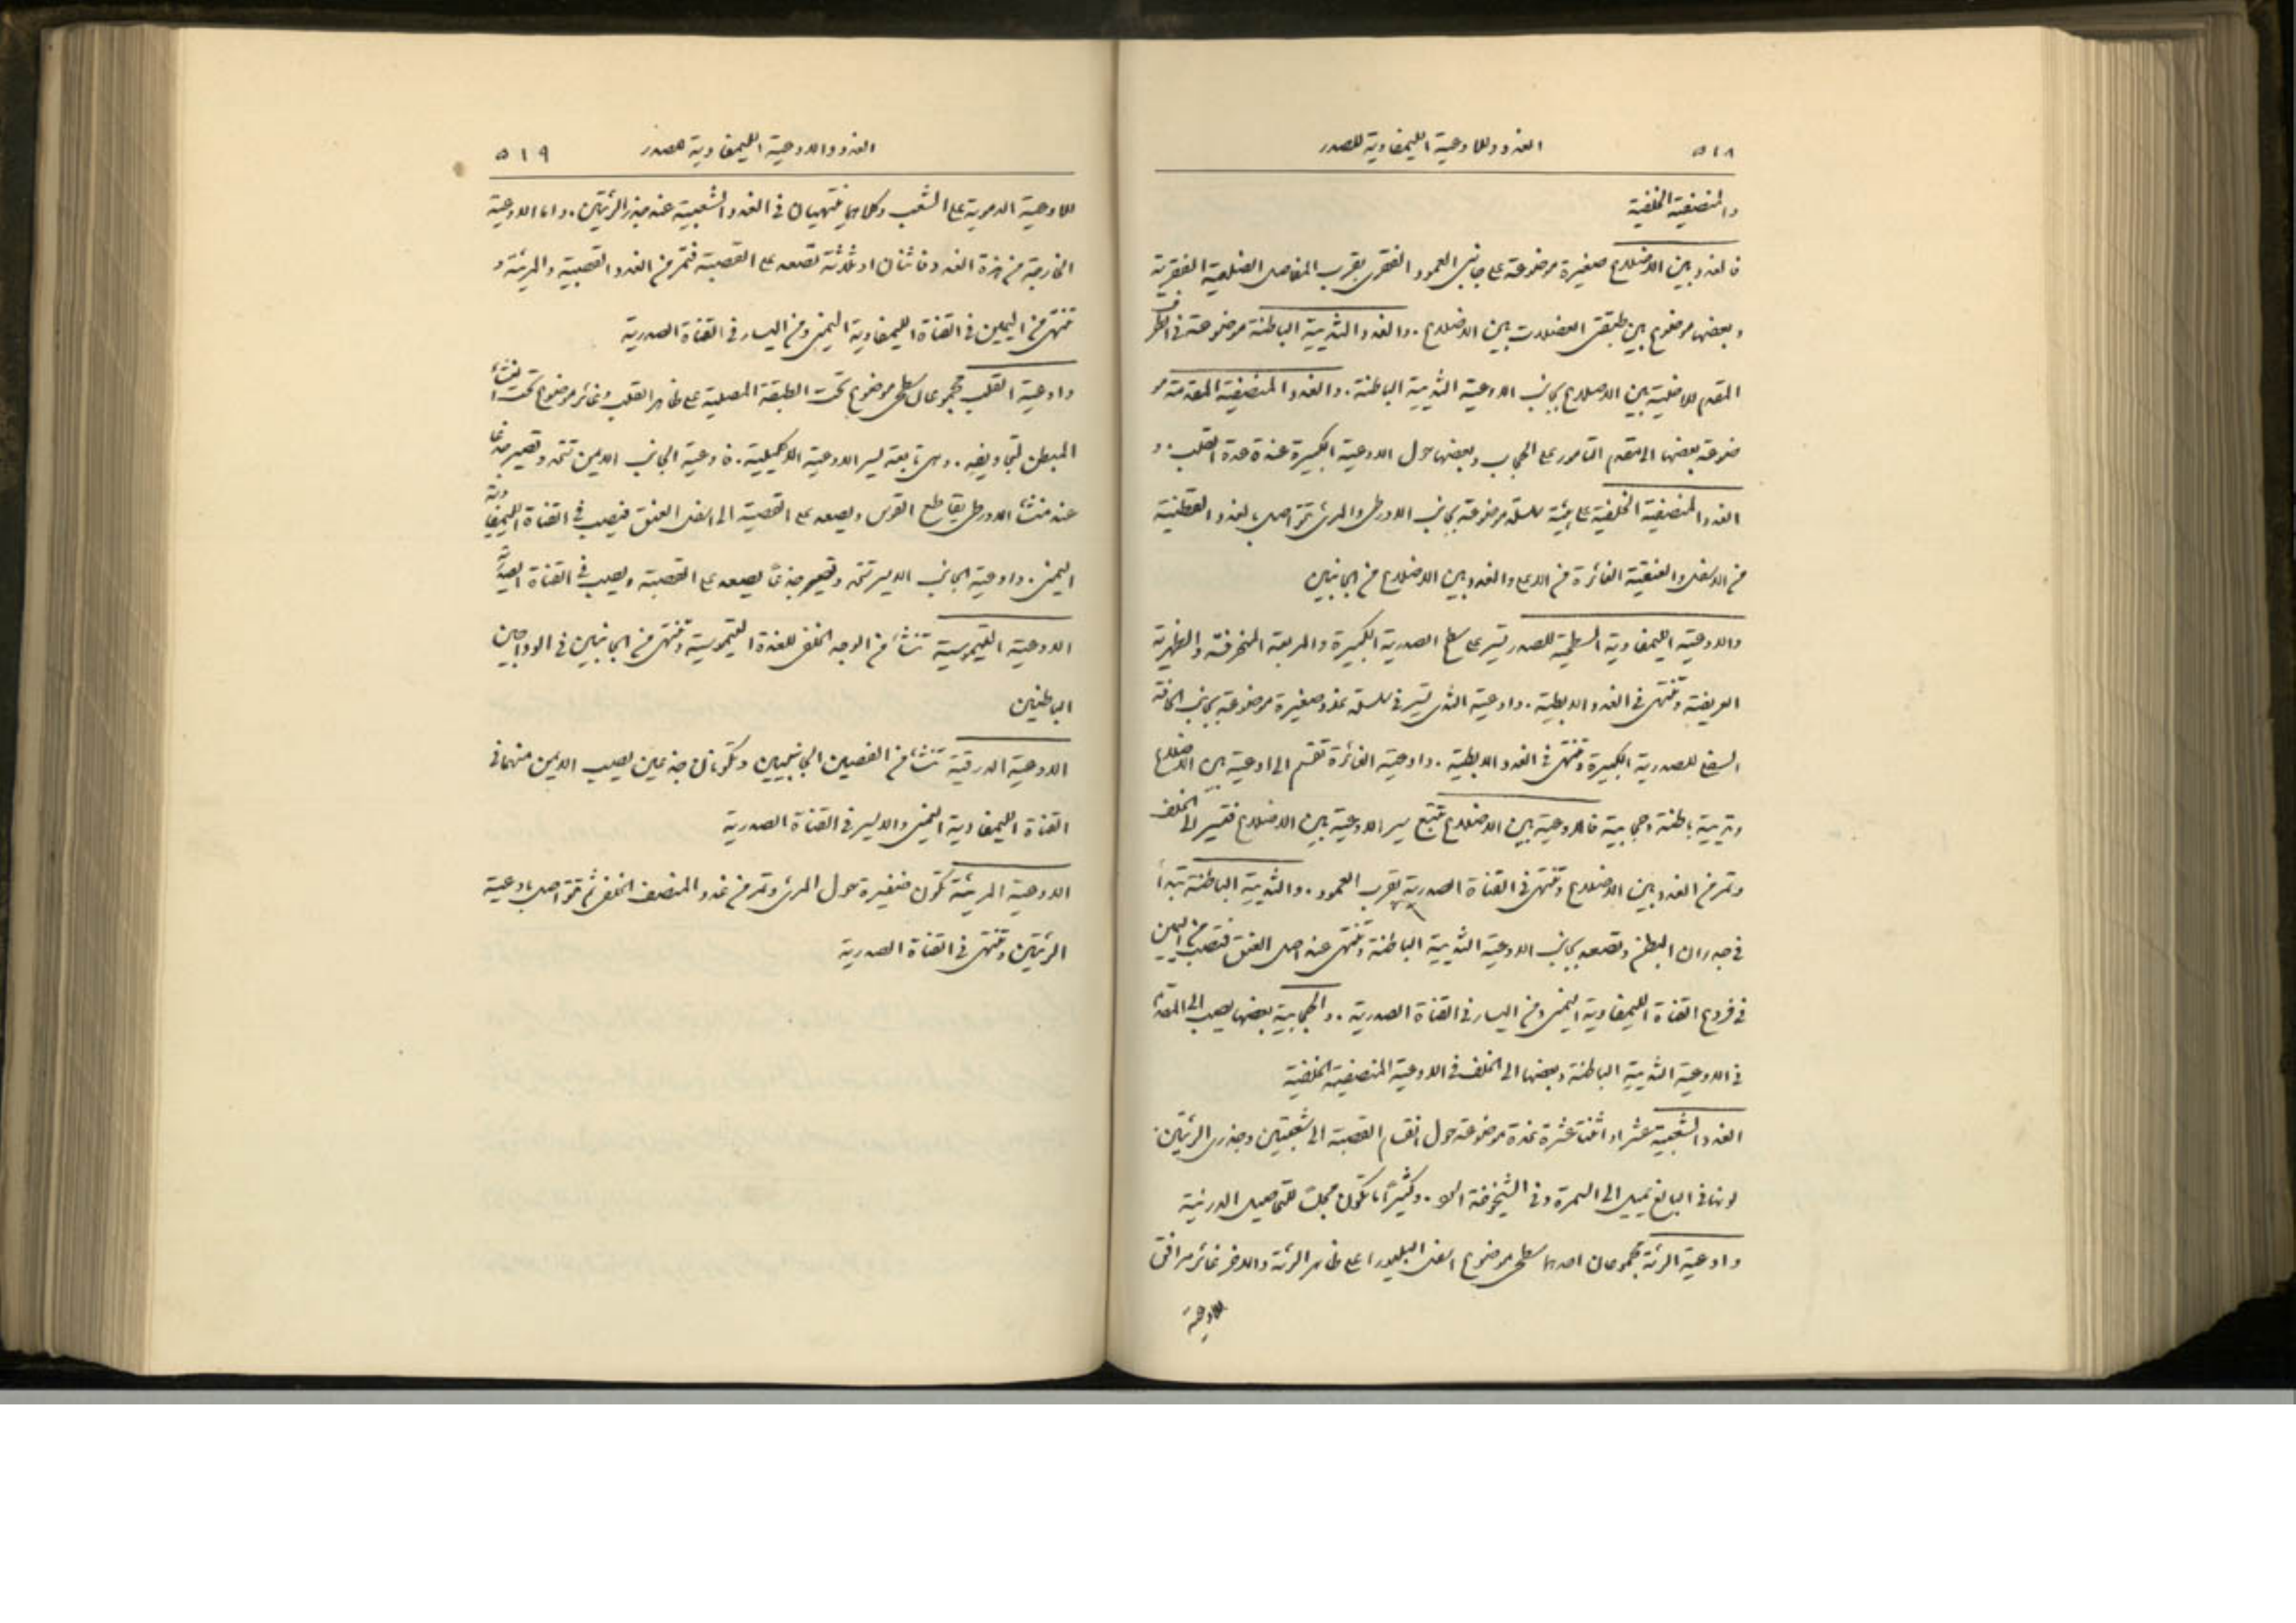 ٥١٨ الغدد والاوعية الليمفاوية للصدر
والمنصفية الخلفية
فالغدد بين الاضلاع صغيرة موضوعة على جانبي العمود الفقري بقرب المفاصل الضلعية الفقرية
وبعضها موضوع بين طبقتي العضلات بين الاضلاع . والغدد الثديية الباطنة موضوعة في الطرف
المقدم للاخلية بين الاضلاع بجانب الاوعية الثديية الباطنة . والغدد المنصفية المقدمة مو
ضوعة بعضها الى مقدم التامور على الحجاب وبعضها حول الاوعية الكبيرة عند قاعدة القلب . و
الغدد المنصفية الخلفية على هيئة سلسلة موضوعة بجانب الاورطي والمرئ تتواصل بالغدد القطنية
من الاسفل والعنقية الغائرة من الاعلى والغدد بين الاضلاع من الجانبين
والاوعية الليمفاوية السطحية للصدر تسير على سطح الصدرية الكبيرة والمربعة المنحرفة والظهرية
العريضة وتنتهي في الغدد الابطية . واوعية الثدي تسير في سلسلة غدد صغيرة موضوعة بجانب الحافة
السفلى للصدرية الكبيرة وتنتهي في الغدد الابطية . واوعية الغائرة تنقسم الى اوعية بين الاضلاع
وثديية باطنة وحجابية فالاوعية بين الاضلاع تتبع سير الاوعية بين الاضلاع فتسير الى الخلف
وتمر في الغدد بين الاضلاع وتنتهي في القناة الصدرية بقرب العمود . والثديية الباطنة تبدأ
في جدران البطن وتصعد بجانب الاوعية الثديية الباطنة وتنتهي عند اصل العنق فتصب من اليمين
في فروع القناة الليمفاوية اليمنى ومن اليسار في القناة الصدرية . والحجابية بعضها يصب الى المقدم
في الاوعية الثديية الباطنة وبعضها الى الخلف في الاوعية المنصفية الخلفية
الغدد الشعبية عشر او اثنتا عشرة غدة موضوعة حول انقسام القصبة الى شعبتين وجذري الرئتين .
لونها في البالغ يميل الى السمرة وفي الشيخوخة السو . وكثيرًا ما تكون مجلسًا للتحاصيل الدرنية
واوعية الرئة مجموعان احدهما سطحي موضوع اسفل البليورا على ظاهر الرئة والاخر غائر مرافق
للاوعية
الغدد والاوعية الليمفاوية للصدر ٥١٩
للاوعية الدموية على الشعب وكلاهما ينتهيان في الغدد الشعبية عند جذر الرئتين . واما الاوعية
الخارجة من هذه الغدد فاثنان او ثلاثة تصعد على القصبة فتمر في الغدد القصبية والمريئية و
تنتهي من اليمين في القناة الليمفاوية اليمنى ومن اليسار في القناة الصدرية
واوعية القلب مجموعان سطحي موضوع تحت الطبقة المصلية على ظاهر القلب وغائر موضوع تحت الغشاء
المبطن لتجاويفه . وهي تابعة لسير الاوعية الاكليلية . فاوعية الجانب الايمن تتحد وتصير جذعًا
عند منشأ الاورطي يقاطع القوس ويصعد على القصبة الى اسفل العنق فيصب في القناة الليمفاوية
اليمنى . واوعية الجانب الايسر تتحد وتصير جذعًا يصعد على القصبة ويصب في القناة الصدرية
الاوعية الثيموسية تنشأ من الوجه الخلفي للغدة الثيموسية وتنتهي من الجانبين في الوداجين
الباطنين
الاوعية الدرقية تنشأ من الفصين الجانبيين وتكونان جذعين يصب الايمن منهما في
القناة الليمفاوية اليمنى والايسر في القناة الصدرية
الاوعية المريئية تكون ضفيرة حول المرئ وتمر في غدد المنصف الخلفي ثم تتواصل باوعية
الرئتين وتنتهي في القناة الصدرية